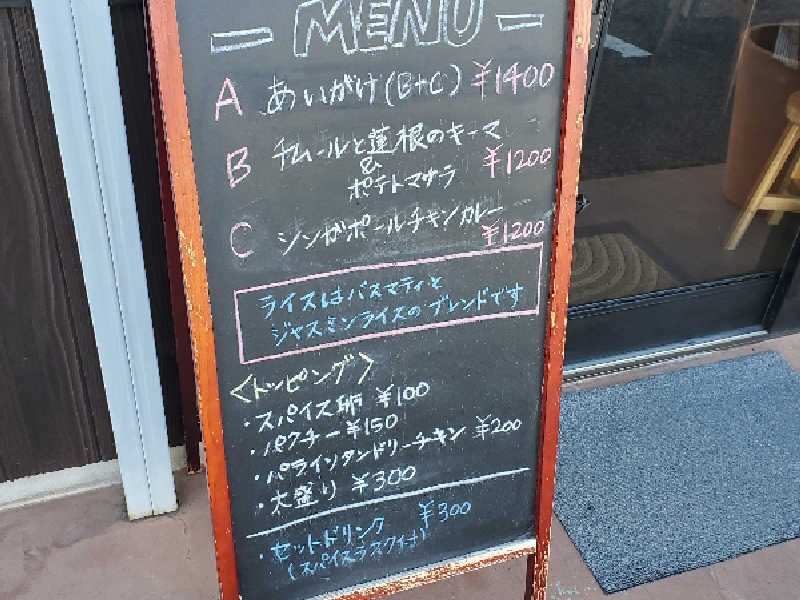 MENU
A あいがけ(B+C) ¥1400
B チムールと蓮根のキーマ
&
ポテトマサラ ¥1200
C シンガポールチキンカレー
¥1200
ライスはバスマティと
ジャスミンライスのブレンドです
<トッピング>
・スパイス卵 ¥100
・パクチー ¥150
・パラインタンドリーチキン ¥200
・大盛り ¥300
・セットドリンク ¥300
(スパイスラスク付)